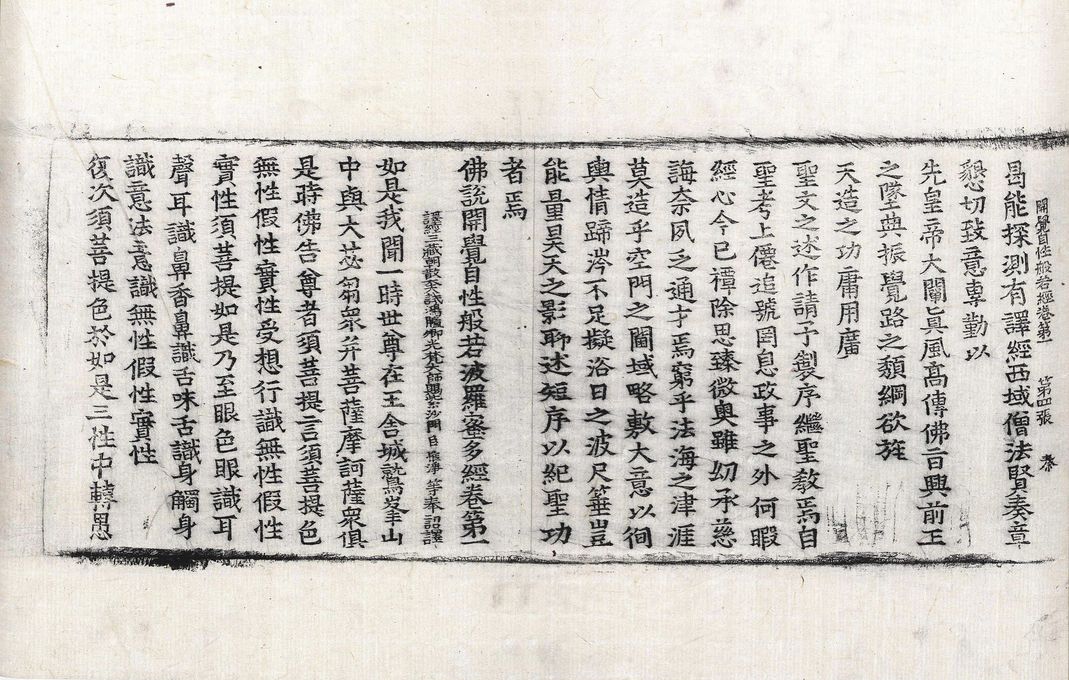 曷能探測有譯經西域僧法賢奏章
開覺自性般若經卷第一 第四張 奉
懇切致意專勤以
先皇帝大闡眞風高傳佛旨興前王
之墜典振覺路之頹綱欲旌
天造之功庸用廣
聖文之述作請予製序繼聖教焉自
聖考上僊追號罔息政事之外何暇
經心今已禫除思臻微奧雖幼承慈
誨奈夙乏通才焉窮乎法海之津涯
莫造乎空門之閫域略敷大意以徇
輿情蹄涔不足擬浴日之波尺箠豈
能量昊天之影聊述短序以紀聖功
者焉
佛說開覺自性般若波羅蜜多經卷第一
譯經三藏朝散大夫試鴻臚卿光梵大師賜紫沙門臣惟淨等奉 詔譯
如是我聞一時世尊在王舍城鷲峯山
中與大苾芻衆幷菩薩摩訶薩衆俱
是時佛告尊者須菩提言須菩提色
無性假性實性受想行識無性假性
實性須菩提如是乃至眼色眼識耳
聲耳識鼻香鼻識舌味舌識身觸身
識意法意識無性假性實性
復次須菩提色於如是三性中轉愚